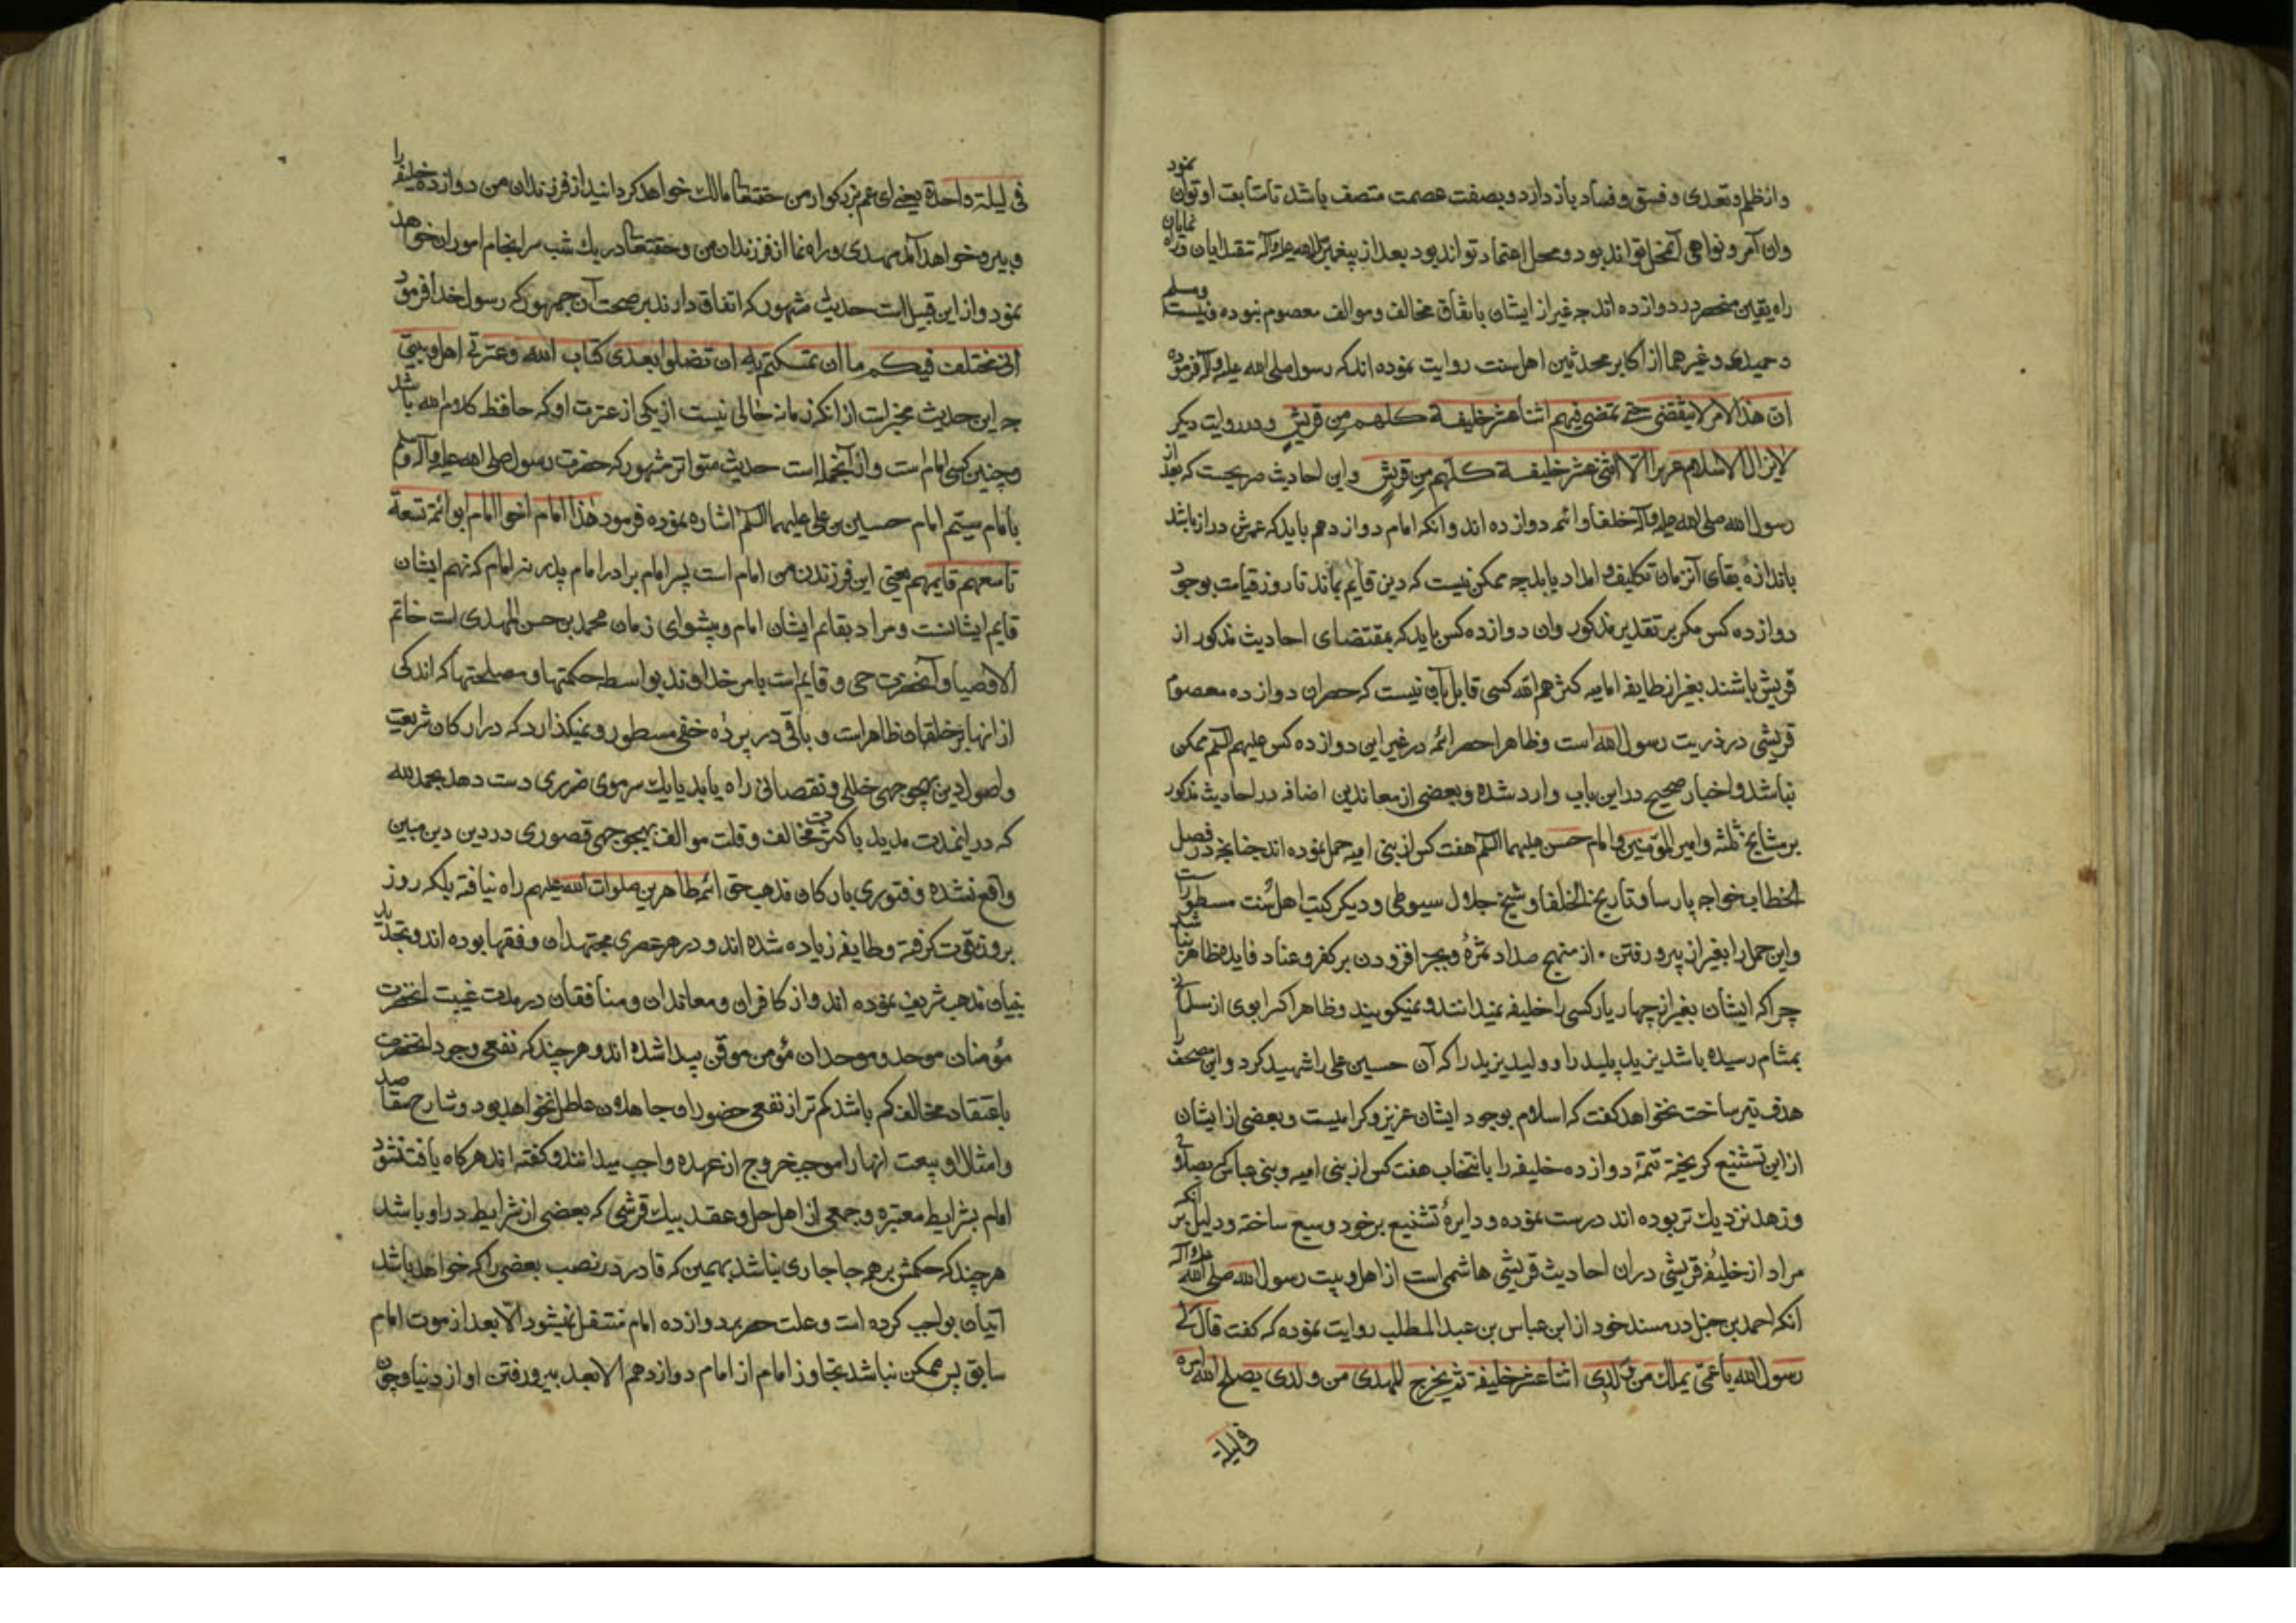 واز ظلم و تعدی و فسق و فساد باز دارد و بصفت عصمت متصف باشد تا متابعت او توان نمود
وان آمر و نواهی نتواند بود و محل اعتماد تواند بود بعد از پیغمبر صلی الله علیه وآله
راه یقین منحصر در دوازده اند چه غیر از ایشان باتفاق مخالف و موالف معصوم نبوده و نیست
و حمیدی و غیرهما از اکابر محدثین اهل سنت روایت نموده اند که رسول صلی الله علیه وآله فرموده
ان هذا الامر لا ینقضی حتی تمضی فیهم اثنا عشر خلیفة کلهم من قریش و در روایت دیکر
لا یزال الاسلام عزیزا الا اثنی عشر خلیفة کلهم من قریش و این احادیث صریحست که بعد از
رسول الله صلی الله علیه وآله خلفا و ائمه دوازده اند و انکه امام دوازدهم باید که عمرش دراز باشد
باندازهٔ بقای آنزمان تکلیف و امداد یابد چه ممکن نیست که دین قایم بماند تا روز قیامت بوجود
دوازده کس مکر بر تقدیر مذکور وان دوازده کس باید که بمقتضای احادیث مذکور از
قریش باشند بغیر از طایفه امامیه کثرهم الله کسی قایل بآن نیست که حصر ان دوازده معصوم
قریشی در ذریت رسول الله است و ظاهرا حصر ائمه در غیر این دوازده کس علیهم السلم ممکن
نباشد و اخبار صحیح در این باب وارد شده و بعضی از معاندین اضافه در احادیث مذکور
بر مشایخ ثلثه و امیر المومنین و امام حسن علیهما السلم هفت کس از بنی امیه حمل نموده اند چنانچه در فصل
الخطاب خواجه پارسا و تاریخ الخلفا و شیخ جلال سیوطی و دیکر کتب اهل سنت مسطور است
واین حمل را بغیر از بیرو رفتن از منهج سداد ثمرهٔ و بجز افزودن بر کفر و عناد فایده ظاهر نباشد
چرا که ایشان بغیر از چهار یار کسی را خلیفه نمیدانند و نمیکویند و ظاهرا کرا بوی از مسلمانی
بمشام رسیده باشد یزید پلید را و ولید یزید را که آن حسین علی را شهید کرد و این مصحف را
هدف تیر ساخت نخواهد کفت که اسلام بوجود ایشان عزیز و کرامیست و بعضی از ایشان
از این تشنیع کریخته تتمهٔ دوازده خلیفه را بانتخاب هفت کس از بنی امیه و بنی عباس که بصلاح
و زهد نزدیك تر بوده اند درست نموده و دایرهٔ تشنیع بر خود وسیع ساخته و دلیل بر انکه
مراد از خلیفه قریشی دران احادیث قریشی هاشمی است از اهل بیت رسول الله صلی الله علیه وآله
انکه احمد بن حنبل در مسند خود از ابن عباس بن عبدالمطلب روایت نموده که کفت قال لی
رسول الله یا عمی یملك من ولدی اثنا عشر خلیفة ثم یخرج المهدی من ولدی یصلح الله امره
فی لیلة
فی لیلة واحدة یعنی ای عم بزرکوار من حقتعالی مالك خواهد کردانید از فرزندان من دوازده خلیفه را
و بیرو خواهد آمد مهدی و راه نما از فرزندان من و حقتعالی در یك شب سرانجام امور ان خواهد
نمود و از این قبیل است حدیث مشهور که اتفاق دارند بر صحت آن جمهور که رسول خدا فرمود
انی مخلف فیکم ما ان تمسکتم به ان تضلوا بعدی کتاب الله و عترتی اهل بیتی
چه این حدیث مخبر است از انکه زمانه خالی نیست از یکی از عترت او که حافظ کلام الله باشد
و چنین کسی امام است و از آنجمله است حدیث متواتر مشهور که حضرت رسول صلی الله علیه وآله وسلم
بامام سیتم امام حسین بن علی علیهما السلم اشاره نموده فرمود هذا امام اخو امام ابو ائمة تسعة
تاسعهم قایمهم یعنی این فرزندن من امام است پسر امام برادر امام پدر نه امام که نهم ایشان
قایم ایشانست و مراد بقایم ایشان امام و پیشوای زمان محمد بن حسن المهدی است خاتم
الاوصیا و آنحضرت حی و قایم است بامر خداوند بواسطه حکمتها و مصلحتها که اندکی
از انها بر خلقان ظاهر است و باقی در پردهٔ خفی مسطور و نمیکذارد که در ارکان شریعت
و اصول دین بهیچوجهی خللی و نقصانی راه یابد یا بیك سر موی ضرری دست دهد بحمد لله
که در اینمدت مدید با کثرت مخالف و قلت موالف بهیچوجهی قصوری در دین دین مبین
واقع نشده و فتوری بارکان مذهب حق ائمه طاهرین صلوات الله علیهم راه نیافته بلکه روز
بروز قوت کرفته و طایفه زیاده شده اند و در هر عصری مجتهدان و فقها بوده اند و تجدید
بنیان مذهب شریف نموده اند و از کافران و معاندان و منافقان در مدت غیبت انحضرت
مؤمنان موحد و موحدان مؤمن موقن پیدا شده اند و هر چند که نفعی وجود انحضرت
باعتقاد مخالف کم باشد کم تر از نفعی حضور او جاهلان عاطل نخواهد بود و شارح مقاصد
و امثال او بیعت انها را موجب خروج از عهده واجب میدانند و کفته اند هرکاه یافت نشود
امام بشرایط معتبره و جمعی از اهل حل و عقد بیك قرشی که بعضی از شرایط در او باشد
هر چند که حکمش بر همه جا جاری نباشد بهمین که قادر در نصب بعضی را که خواهد باشد
اتیان بواجب کرده است و علت حصر بدوازده امام منتقل نمیشود الّا بعد از موت امام
سابق پس ممکن نباشد تجاوز امام از امام دوازدهم الا بعد بیرو رفتن او از دنیا و چون